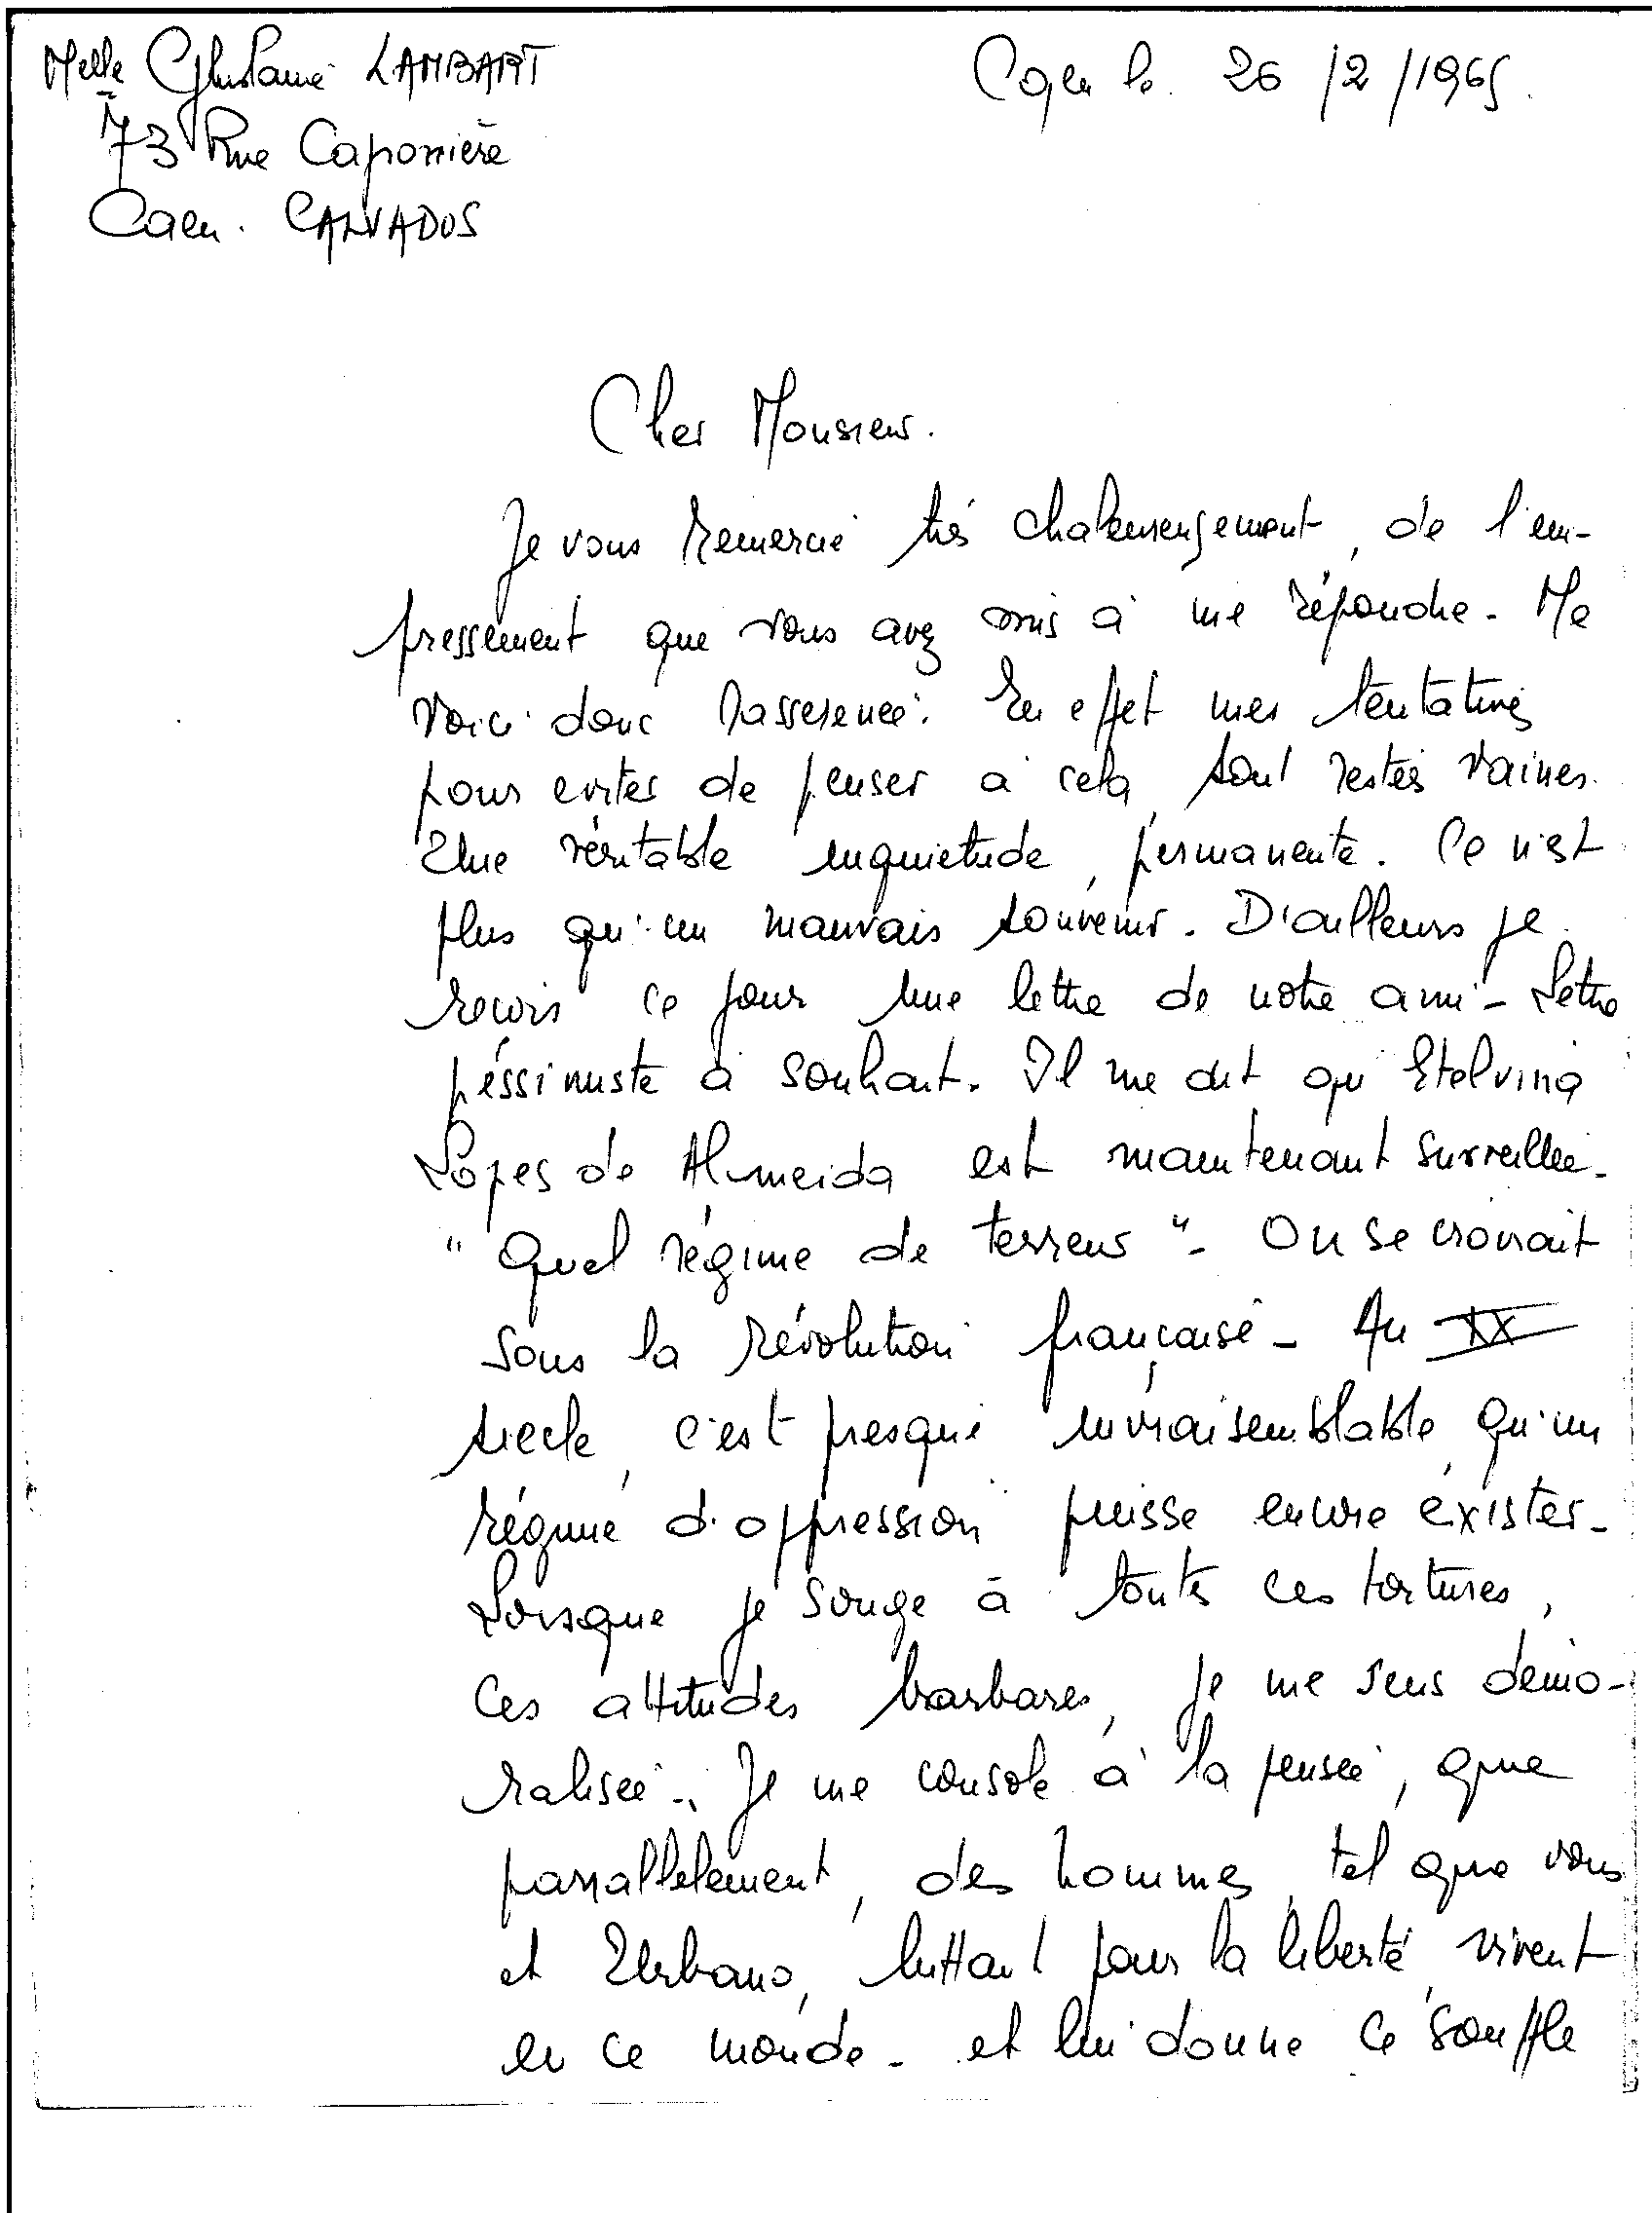 Melle Ghislaine LAMBART
Caen le 26/2/1965.
73 Rue Caponière
Caen. CALVADOS
Cher Monsieur.
Je vous remercie très chaleureusement, de l'em-
pressement que vous avez mis à me répondre - Me
voici donc rasserenée. En effet mes tentatives
pour eviter de penser à cela, sont restés vaines.
Une véritable inquietude, permanente. Ce n'est
plus qu'un mauvais souvenir. D'ailleurs je
reçois ce jour une lettre de notre ami - Lettre
péssimiste à souhait. Il me dit qu'Etelvina
Lopes de Almeida est maintenant surveillée.
" Quel régime de terreur " - On se croirait
sous la révolution française - Au XX
siecle, c'est presque invraisemblable, qu'un
régime d'oppression puisse encore éxister -
Lorsque je songe à toutes ces tortures,
ces attitudes barbares, je me sens démo-
ralisée.. Je me console à la pensée, que
parrallelement, des hommes, tel que vous
et Urbano, luttant pour la liberté, vivent
en ce monde - et lui donne ce souffle